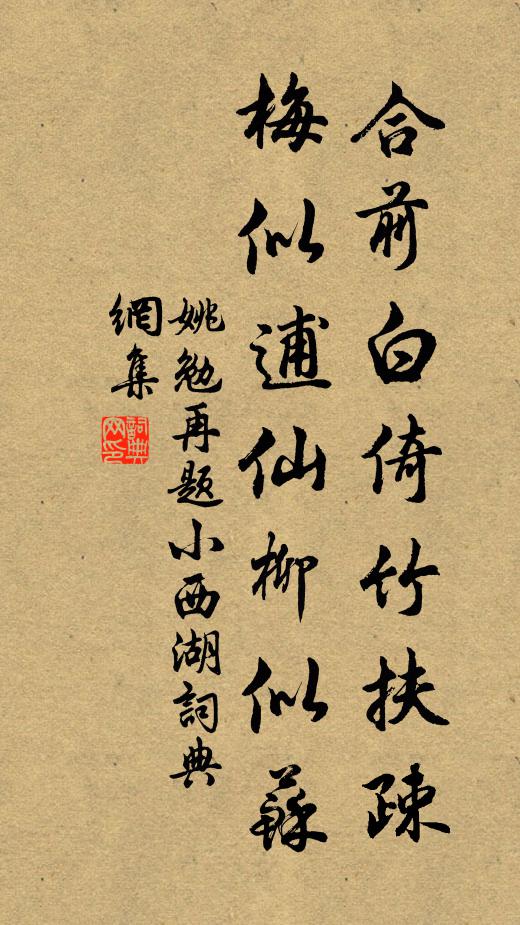 合前白倚竹扶疎
梅似逋仙柳似蘇
姚勉再题小西湖詞典
網集
詞典网印